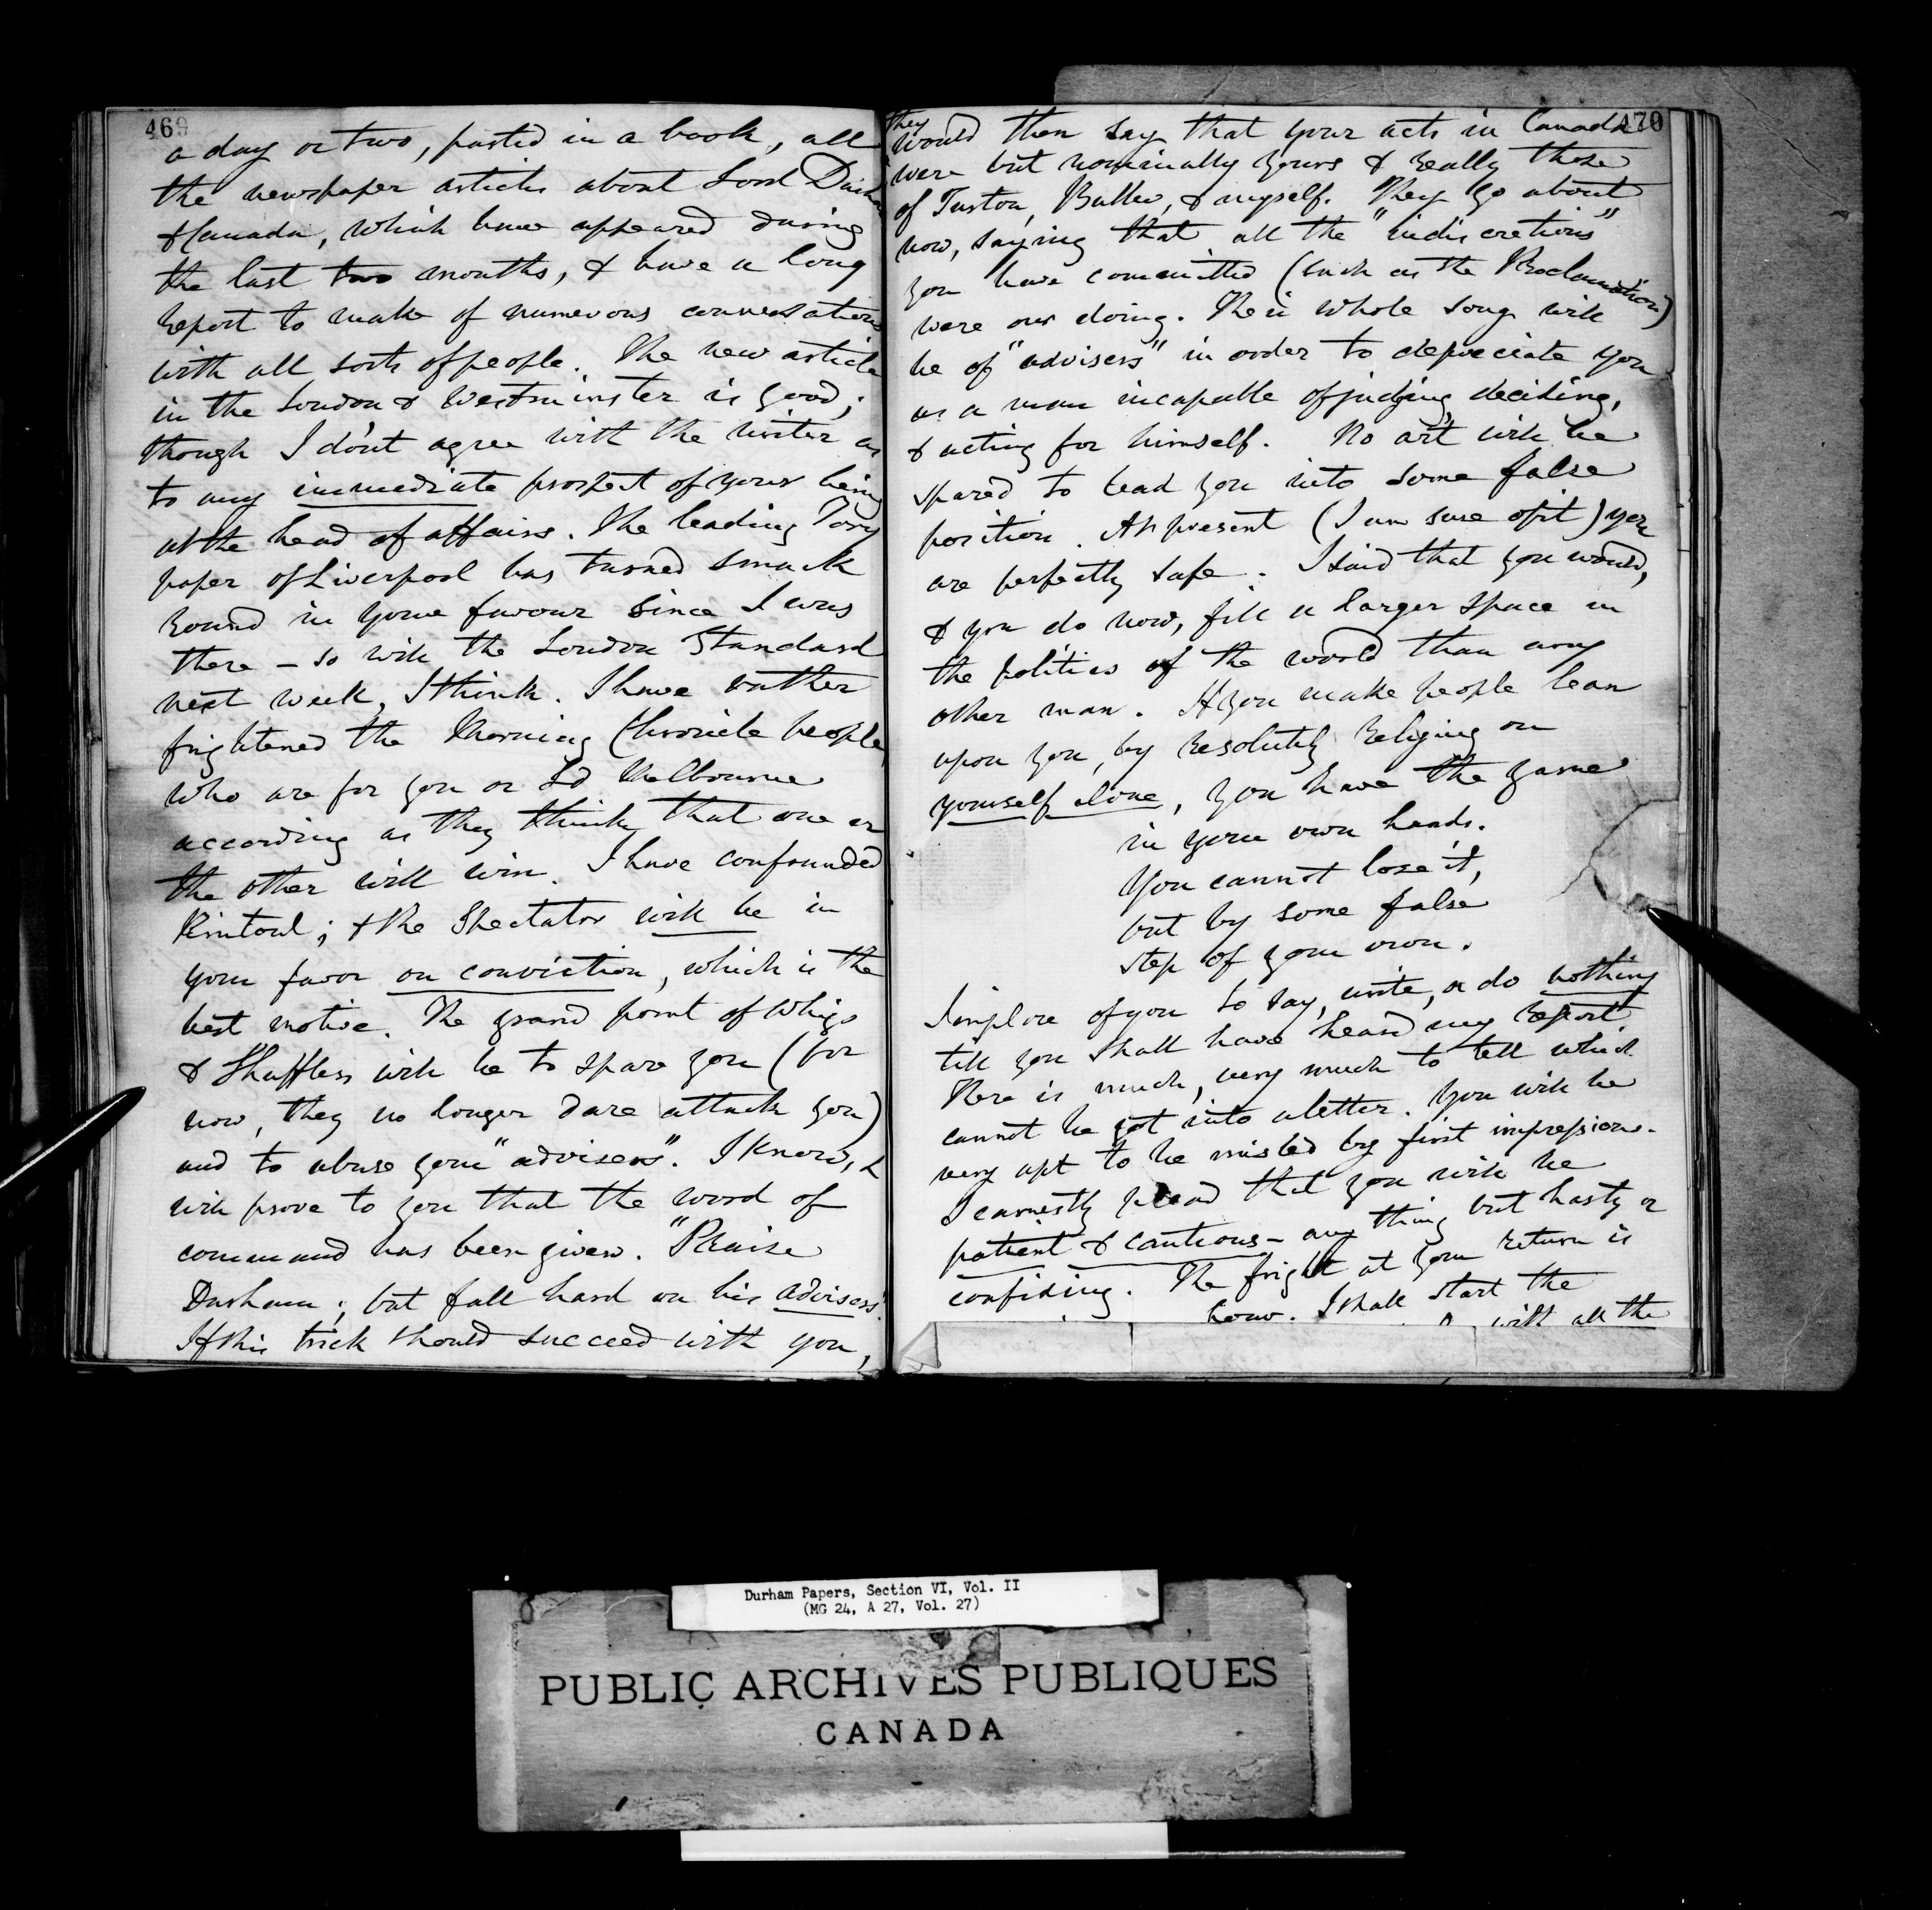 469
a day or two, pasted in a book, all
the newspaper articles about Lord Durham
& Canada, which have appeared during
the last two months, & have a long
report to make of numerous conversations
with all sorts of people. The new article
in the London & Westminster is good;
though I don't agree with the writer as
to any immediate prospect of your being
at the head of affairs. The leading Tory
paper of Liverpool has turned smack
round in your favour since I was
there – so will the London Standard
next week, I think. I have rather
frightened the Morning Chronicle people,
who are for you or Ld Melbourne
according as they think that one or
the other will win. I have confounded
Rintoul; & the Spectator will be in
your favor on conviction, which is the
best motive. The grand point of Whigs
& Shufflers will be to spare you (for
now, they no longer dare attack you)
and to abuse your "advisers". I know, &
will prove to you that the word of
command has been given. "Praise
Durham; but fall hard on his advisers".
If this trick should succeed with you,
470
they
would then say that your acts in Canada
were but nominally yours & really those
of Turton, Buller, & myself. They go about
now, saying that all the "indiscretions"
you have committed (such as the Proclamation)
were our doing. Their whole song will
be of "advisers" in order to depreciate you
as a man incapable of judging, deciding,
& acting for himself. No art will be
spared to lead you into some false
position. At present (I am sure of it) you
are perfectly safe. I said that you would,
& you do now, fill a larger space in
the politics of the world than any
other man. If you make people lean
upon you, by resolutely relying on
yourself alone, you have the game
in your own hands.
You cannot lose it,
but by some false
step of your own.
I implore of you to say, write, or do nothing
till you shall have heard my report.
There is much, very much to tell which
cannot be got into a letter. You will be
very apt to be misled by first impressions.
I earnestly plead that you will be
patient & cautious – any thing but hasty or
confiding. The fright at your return is
I shall start the
with all the
Durham Papers, Section VI, Vol. II
(MG 24, A 27, Vol. 27)
PUBLIC ARCHIVES PUBLIQUES
CANADA